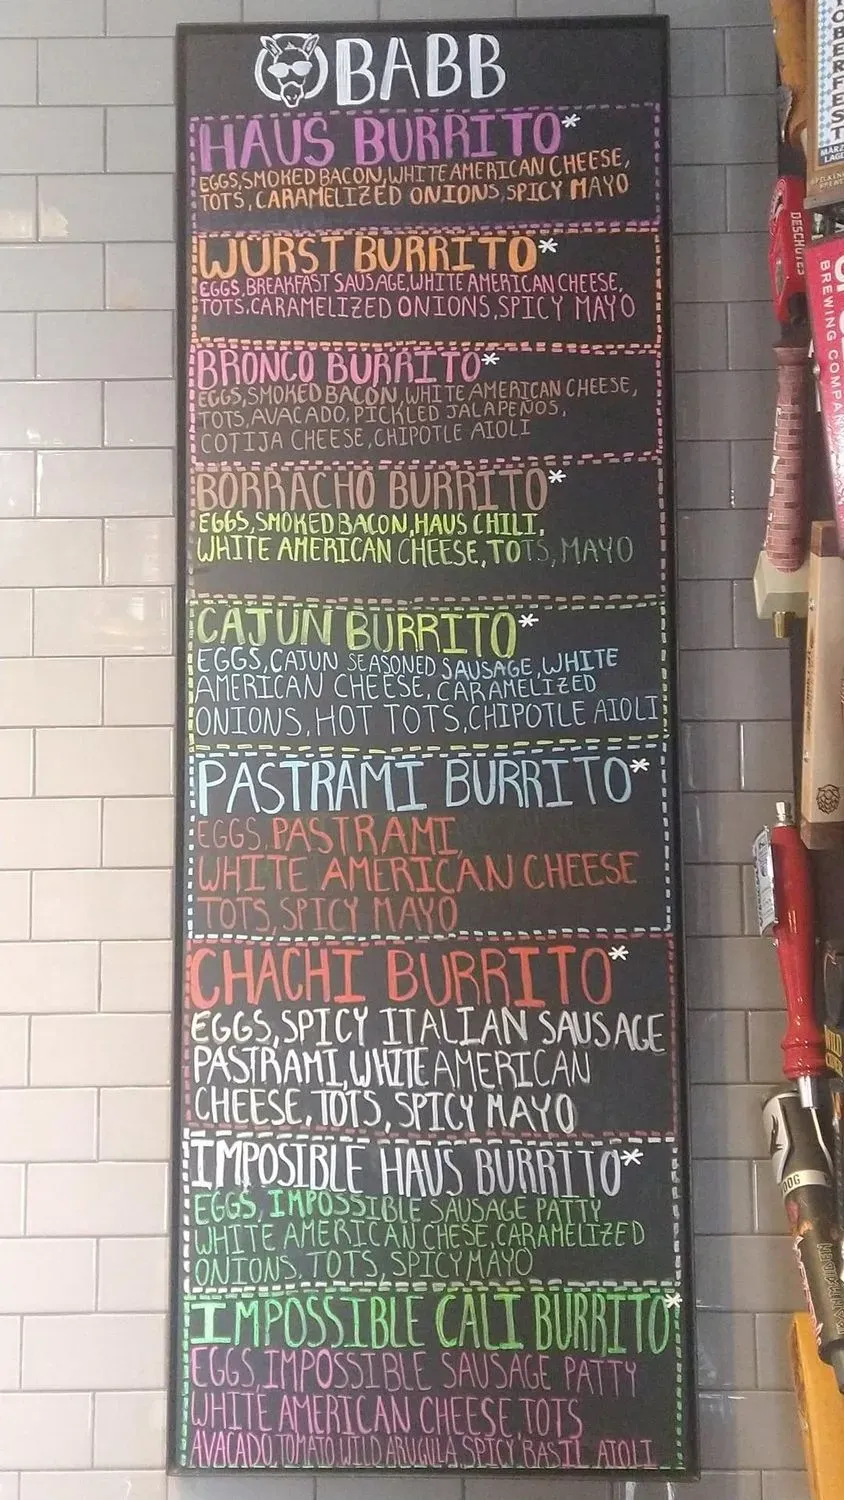 BABB
HAUS BURRITO*
EGGS, SMOKED BACON, WHITE AMERICAN CHEESE,
TOTS, CARAMELIZED ONIONS, SPICY MAYO
WURST BURRITO*
EGGS, BREAKFAST SAUSAGE, WHITE AMERICAN CHEESE,
TOTS, CARAMELIZED ONIONS, SPICY MAYO
BRONCO BURRITO*
EGGS, SMOKED BACON, WHITE AMERICAN CHEESE,
TOTS, AVACADO, PICKLED JALAPEÑOS,
COTIJA CHEESE, CHIPOTLE AIOLI
BORRACHO BURRITO*
EGGS, SMOKED BACON, HAUS CHILI,
WHITE AMERICAN CHEESE, TOTS, MAYO
CAJUN BURRITO*
EGGS, CAJUN SEASONED SAUSAGE, WHITE
AMERICAN CHEESE, CARAMELIZED
ONIONS, HOT TOTS, CHIPOTLE AIOLI
PASTRAMI BURRITO*
EGGS, PASTRAMI,
WHITE AMERICAN CHEESE
TOTS, SPICY MAYO
CHACHI BURRITO*
EGGS, SPICY ITALIAN SAUSAGE
PASTRAMI, WHITE AMERICAN
CHEESE, TOTS, SPICY MAYO
IMPOSIBLE HAUS BURRITO*
EGGS, IMPOSSIBLE SAUSAGE PATTY
WHITE AMERICAN CHESE, CARAMELIZED
ONIONS, TOTS, SPICY MAYO
IMPOSSIBLE CALI BURRITO*
EGGS, IMPOSSIBLE SAUSAGE PATTY
WHITE AMERICAN CHEESE, TOTS
AVACADO, TOMATO, WILD ARUGULA, SPICY BASIL AIOLI
TOBERFEST
LAGER
DESCHUTES
BREWING COMPANY
WILD
CIDER
DOG